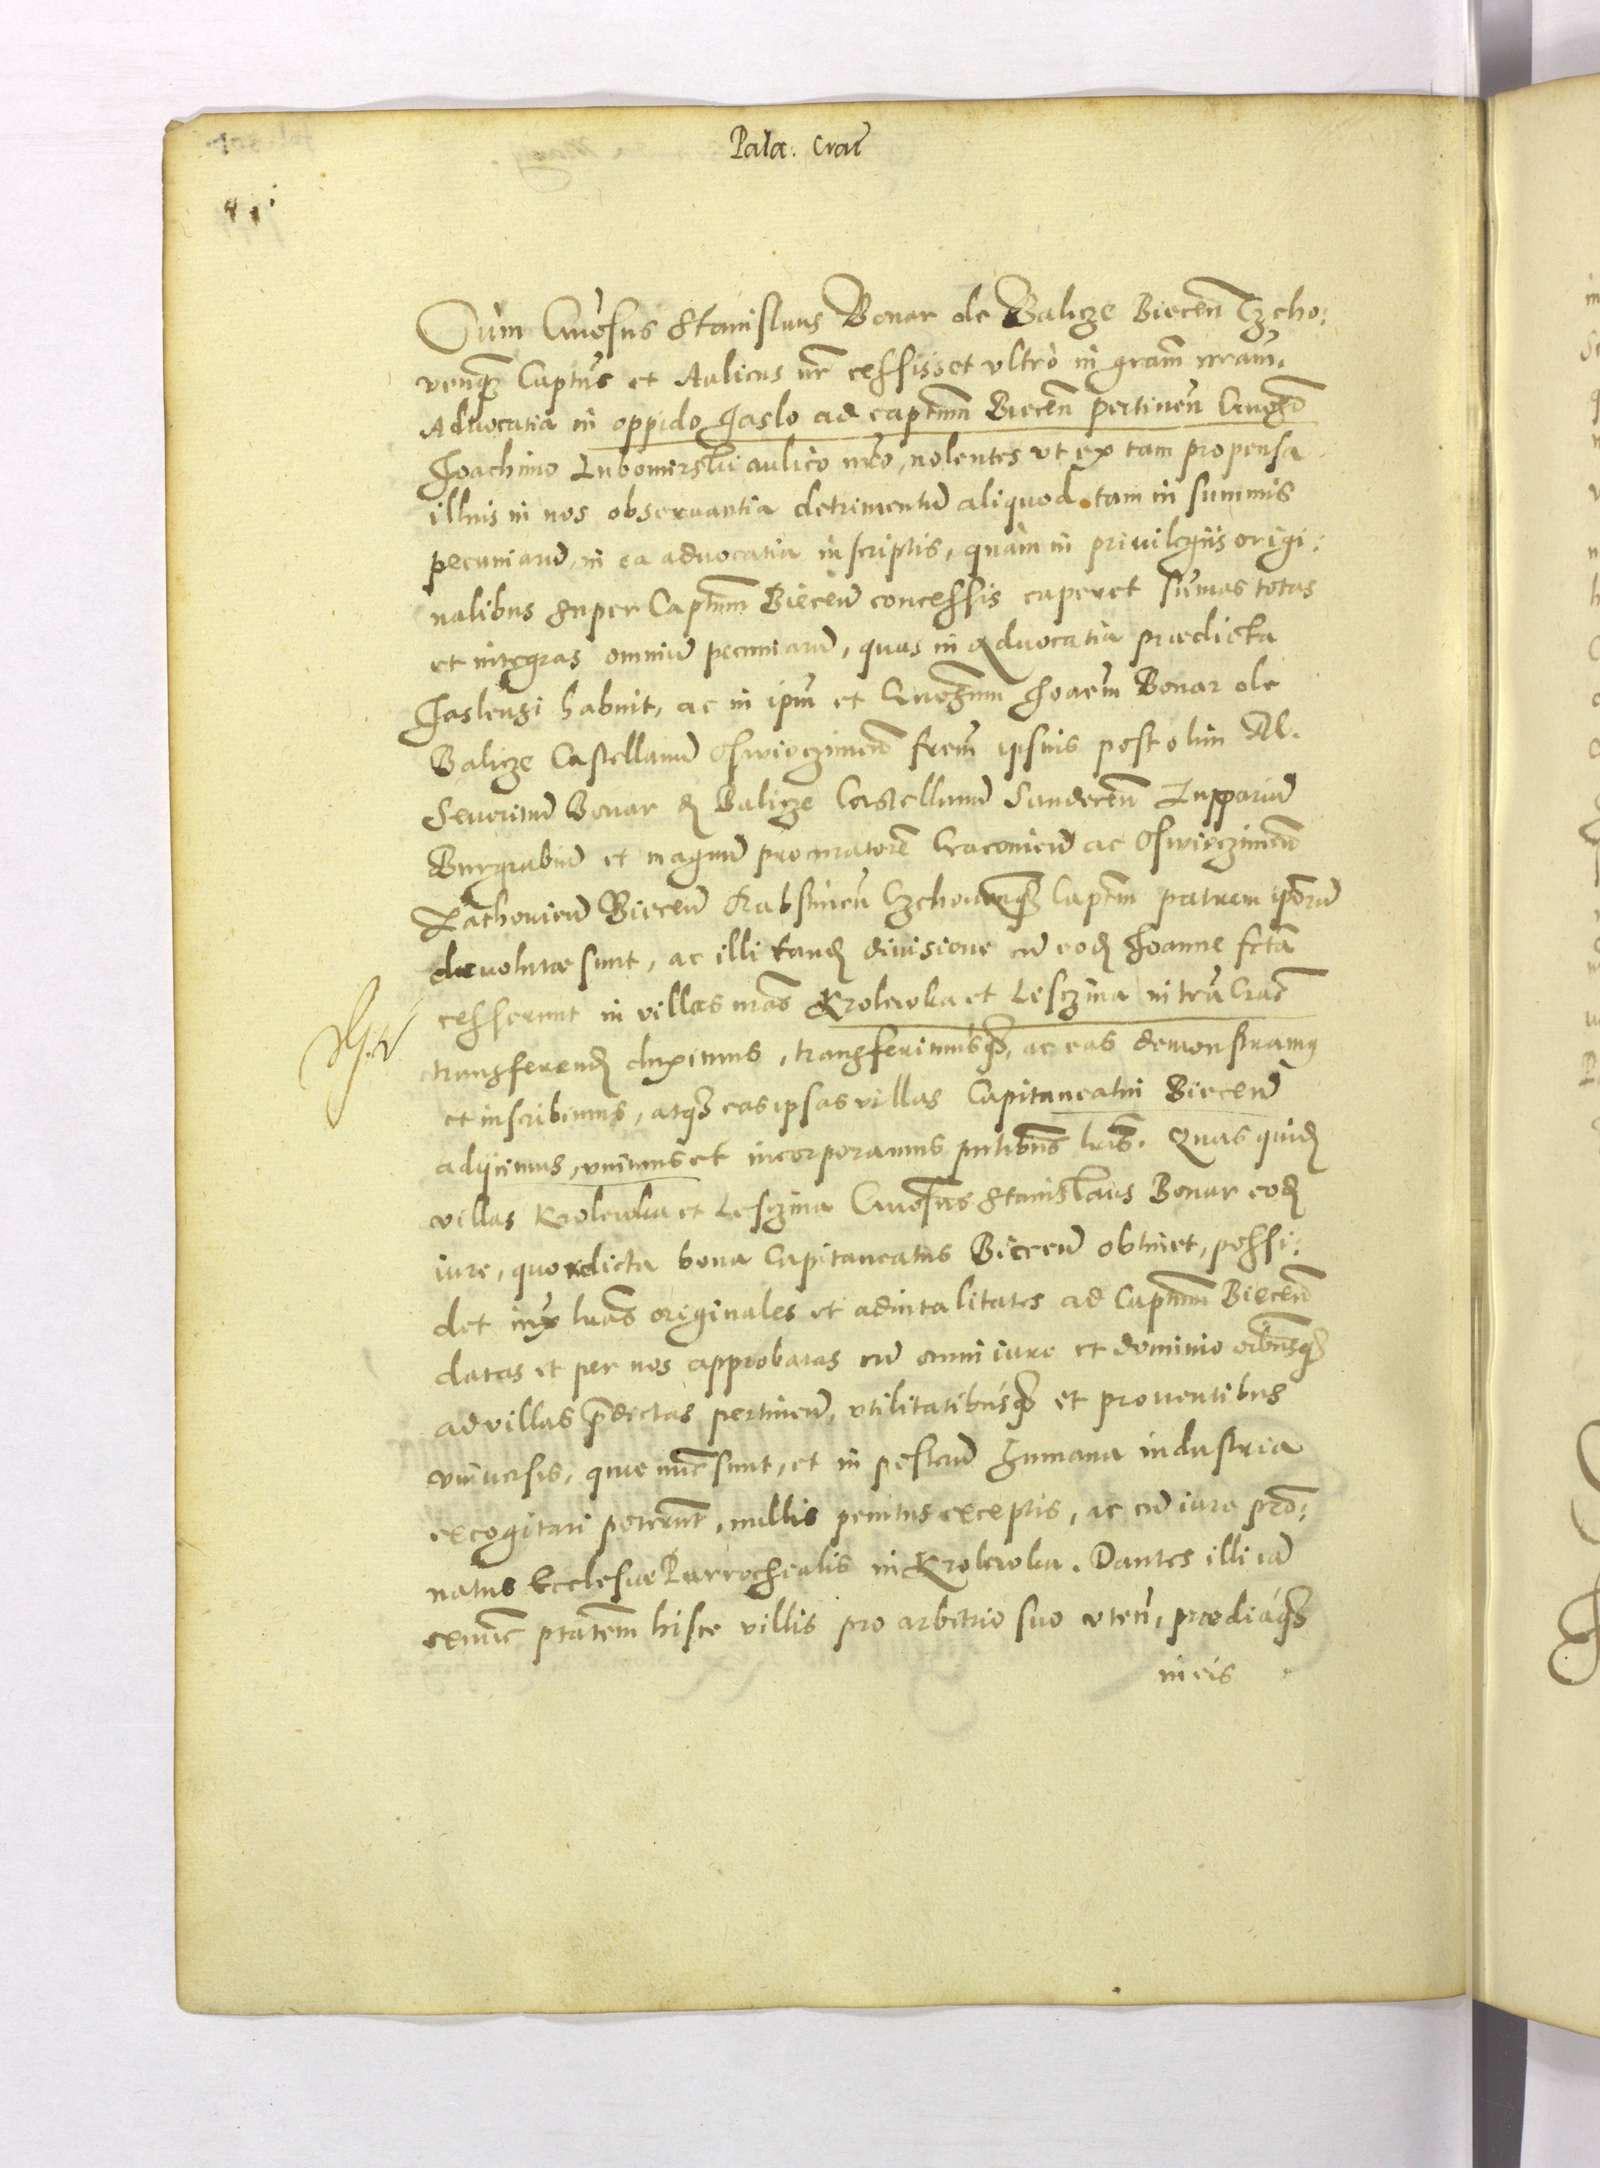 Pala: Crac̄
Cum Gn̄osus Stanislaus Bonar de Balicze Biecen̄ Czcho:
venq́ꝫ Captūs et Aulicus nr̄ cessisset vltrò in gram̄ nr̄am,
Aduocatia in oppido Jaslo ad captum̄ Biecen̄ pertinen̄ Gn̄oso
Joachimo Lubomirski aulico nr̄o, nolentes vt ex tam propensa
illius in nos obseruantia detrimentū aliquod tam in summis
pecuniarū, in ea aduocatia inscriptis, quàm in priuilegiis origi:
nalibus super Captum̄ Biecen̄ concessis caperet sūmas totas
et integras omniū pecuniarū, quas in Aduocatia prædicta
Jaslensi habuit, ac in ipm̄ et Gn̄osum Joaem̄ Bonar de
Balicze Castellanū Oswieczimen̄ frem̄ ipsius post olim M.
Seuerinū Bonar d Balicze Castellanū Sandecen̄ Zupparium
Burgrabiū et magnū procuratorē Cracouien̄ ac Oswieczimen̄
Zathorien̄ Biecen̄ Rabstinen̄ Czchouenq́ꝫ Captm̄ patrem ipōrū
deuolutæ sunt, ac illi tand diuisione cū eod Joanne fctā
cesserunt in villas nrās Krolewka et Lesczina in tra Crac̄
transferend duximus, transferimusq́ꝫ, ac eas demonstramꝰ
et inscribimus, atq́ꝫ eas ipsas villas Capitaneatui Biecen̄
adiicimus, vnimus et incorporamus pn̄tibus lrīs. Quas quid
villas Krolewka et Lesczina Gn̄osus Stanislaus Bonar eod
iure, quo dicta bona Capitaneatus Biecen̄ obtinet, possi:
det iux lrās originales et aduitalitates ad Captum̄ Biecen̄
datas et per nos approbatas cū omni iure et dominio oībusq́ꝫ
ad villas p̄dictas pertinen̄, vtilitatibusq́ꝫ et prouentibus
vniuersis, quæ nūc sunt, et in posterū humana industria
excogitari poterunt, nullis penitus exceptis, ac cū iure pro:
natus Ecclesiæ Parrochialis in Krolewka. Dantes illi iā
exnūc ptātem hisce villis pro arbitrio suo vten̄, prædiaq́ꝫ
in eis